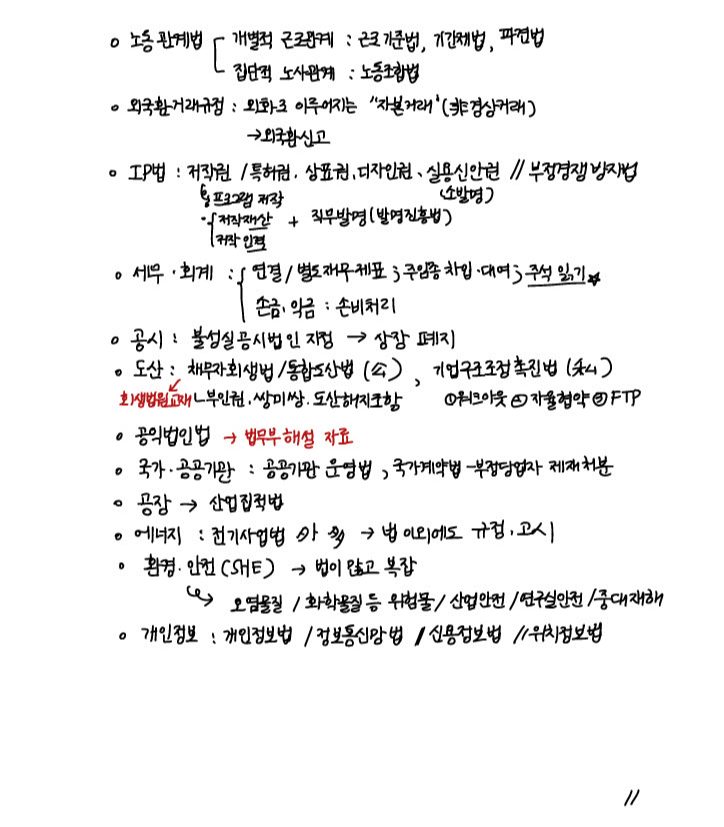 o 노동관계법 ┌ 개별적 근로관계 : 근로기준법, 기간제법, 파견법
└ 집단적 노사관계 : 노동조합법
o 외국환거래규정 : 외화로 이루어지는 "자본거래" (非경상거래)
→ 외국환신고
o IP법 : 저작권 / 특허권, 상표권, 디자인권, 실용신안권 // 부정경쟁방지법
프로그램 저작 (소발명)
{ 저작재산 + 직무발명(발명진흥법)
저작인격
o 세무·회계 : { 연결/별도재무제표 ; 주임종 차입·대여 ; 주석 읽기 ★
손금, 익금 : 손비처리
o 공시 : 불성실공시법인 지정 → 상장 폐지
o 도산 : 채무자회생법/통합도산법 (公), 기업구조조정촉진법 (私)
회생법원교재 ㄴ부인권, 쌍미쌍, 도산해지조항 ①워크아웃 ②자율협약 ③FTP
o 공익법인법 → 법무부 해설 자료
o 국가·공공기관 : 공공기관 운영법, 국가계약법-부정당업자 제재처분
o 공장 → 산업집적법
o 에너지 : 전기사업법 → 법 이외에도 규정, 고시
o 환경·안전(SHE) → 법이 많고 복잡
↳ 오염물질 / 화학물질 등 위험물 / 산업안전 / 연구실안전 / 중대재해
o 개인정보 : 개인정보법 / 정보통신망법 / 신용정보법 // 위치정보법
//